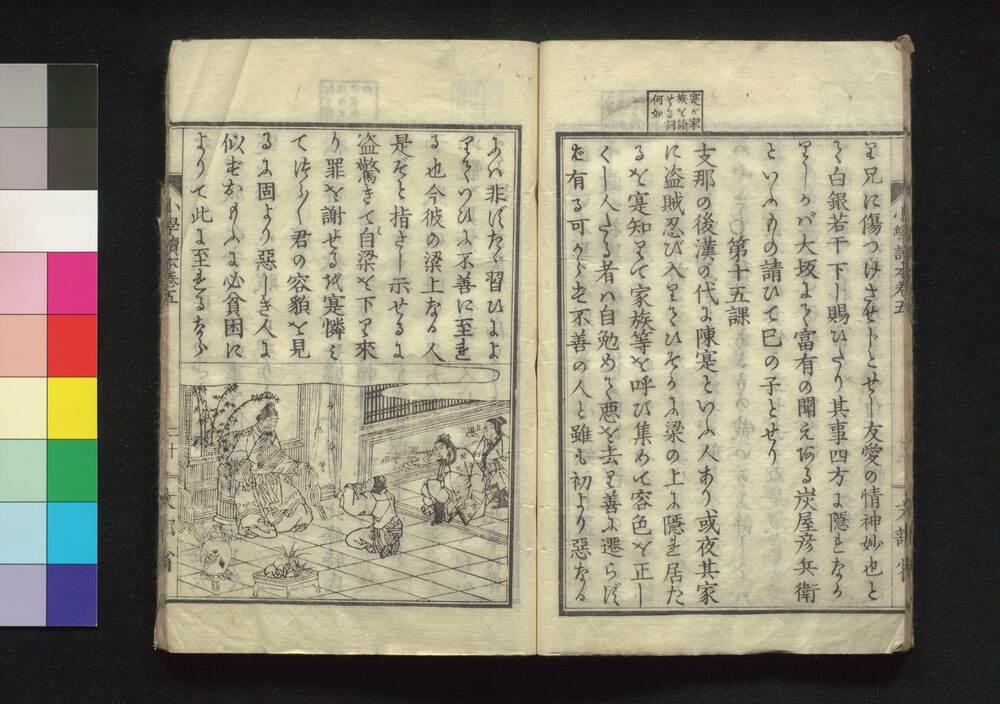 寔ガ家
族を諭
せる詞
何如
り兄に傷つけさせじとせし友愛の情神妙也と
て白銀若干下し賜ひたり其事四方に隠れなか
りしかバ大坂にて富有の聞えある炭屋彦兵衛
といふもの請ひて已の子とせり
〇第十五課
支那の後漢の代に陳寔といふ人あり或夜其家
に盗賊忍び入りてひそかに梁の上に隠れ居た
るを寔知りて家族等を呼び集めて容色を正し
くし人たる者ハ自勉めて悪を去り善に遷らず
ば有る可からず不善の人と雖も初より惡なる
小學讀本巻五
文部省
にハ非ずたゞ習ひによ
りてつひに不善に至れ
る也今彼の梁上なる人
是ぞと指さし示せるに
盗驚きて自梁を下り來
り罪を謝せるを寔憐み
てつらつら君の容貌を見
るに固より惡しき人に
似ずおもふに必貧困に
よりて此に至れるなら
小學讀本巻五
二十
文部省